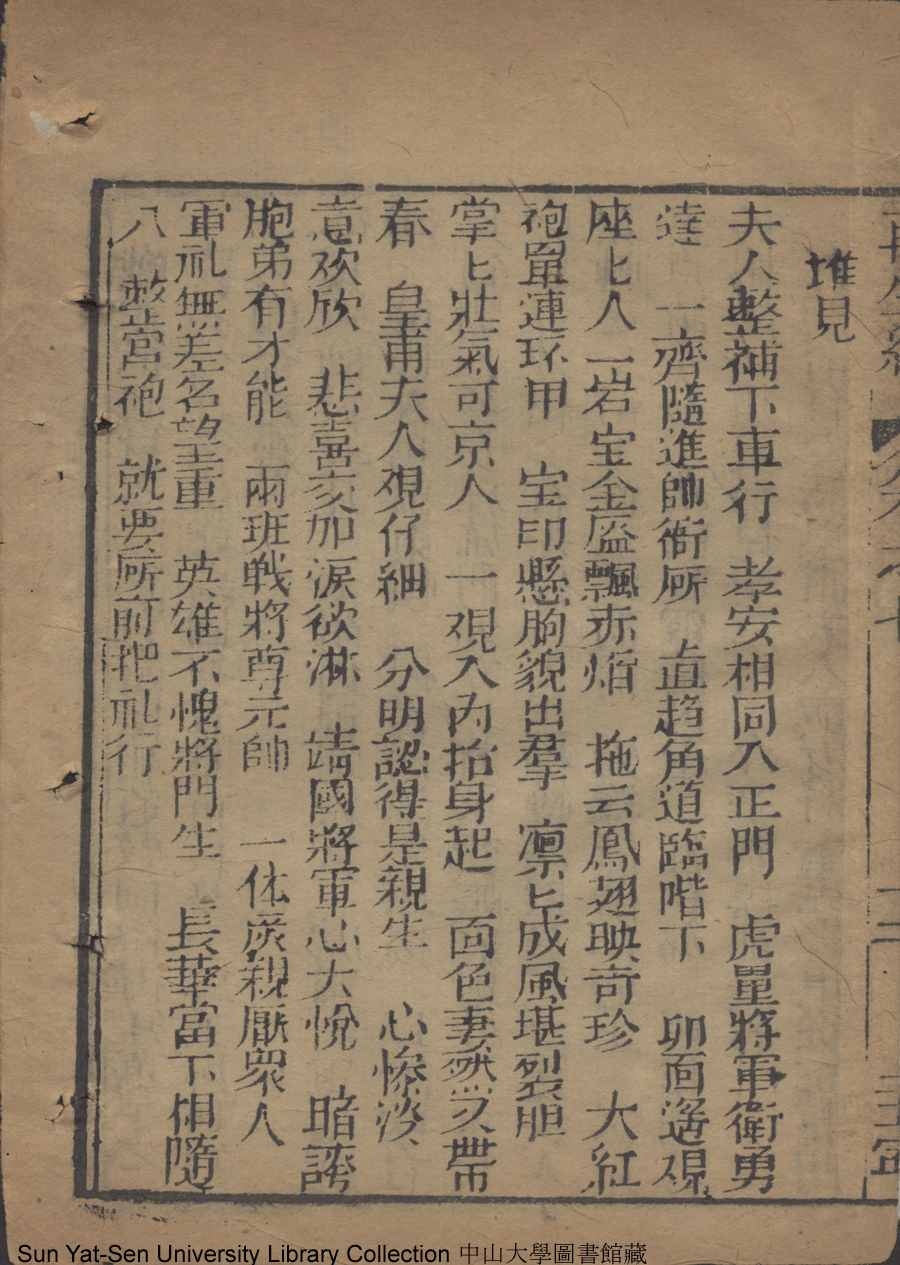 堆見
夫人整補下車行　孝安相同入正門　虎量將軍衛勇
達　一齊隨進帥衙廝　直趨角道臨階下　卯面遙覌
座匕人　一岩宝金盔飄赤焰　拖云鳳翅映奇珍　大紅
袍罩連环甲　宝印懸胸貌出羣　凛匕成風堪裂胆
掌匕壯氣可京人　一覌入内抬身起　面色妻然又帶
春　皇甫夫人覌仔細　分明認得是親生　心慘淡
意欢欣　悲喜交加淚欲淋　靖國將軍心大悅　暗誇
胞弟有才能　兩班戰將尊元帥　一体嚴親壓衆人
軍礼無差名望重　英雄不愧將門生　長華當下相隨
八　整宫袍　就要廝前把礼行
Sun Yat-Sen University Library Collection 中山大學圖書館藏